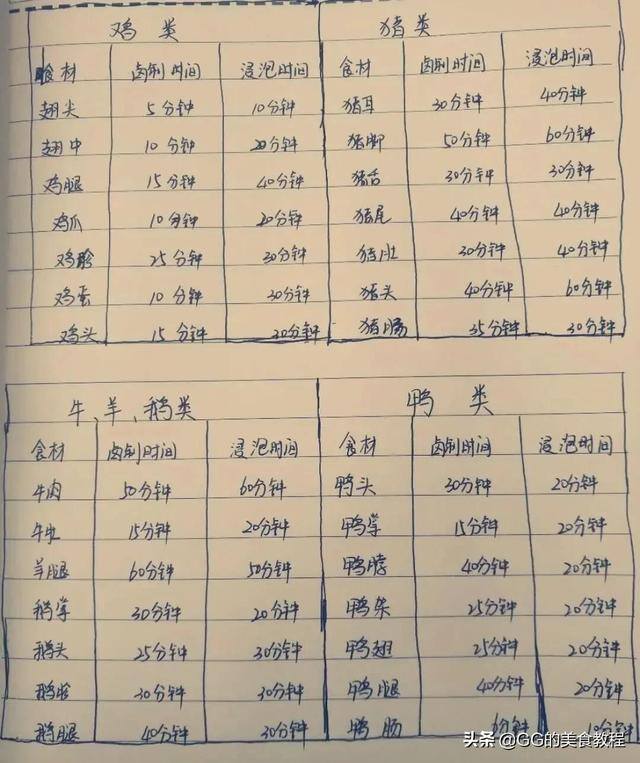 鸡类 猪类
食材 卤制时间 浸泡时间 食材 卤制时间 浸泡时间
翅尖 5分钟 10分钟 猪耳 30分钟 40分钟
翅中 10分钟 20分钟 猪脚 50分钟 60分钟
鸡腿 15分钟 40分钟 猪舌 30分钟 30分钟
鸡爪 10分钟 20分钟 猪尾 40分钟 40分钟
鸡胗 25分钟 30分钟 猪肚 30分钟 40分钟
鸡蛋 10分钟 30分钟 猪头 40分钟 60分钟
鸡头 15分钟 20分钟 猪肠 35分钟 30分钟
牛、羊、鹅类 鸭类
食材 卤制时间 浸泡时间 食材 卤制时间 浸泡时间
牛肉 50分钟 60分钟 鸭头 30分钟 20分钟
牛肚 15分钟 20分钟 鸭掌 15分钟 20分钟
羊腿 60分钟 50分钟 鸭脖 40分钟 20分钟
鹅掌 30分钟 20分钟 鸭架 25分钟 20分钟
鹅头 25分钟 30分钟 鸭翅 25分钟 20分钟
鹅胗 30分钟 30分钟 鸭腿 40分钟 20分钟
鹅腿 40分钟 30分钟 鸭肠 分钟 10分钟
头条 @GG的美食教程